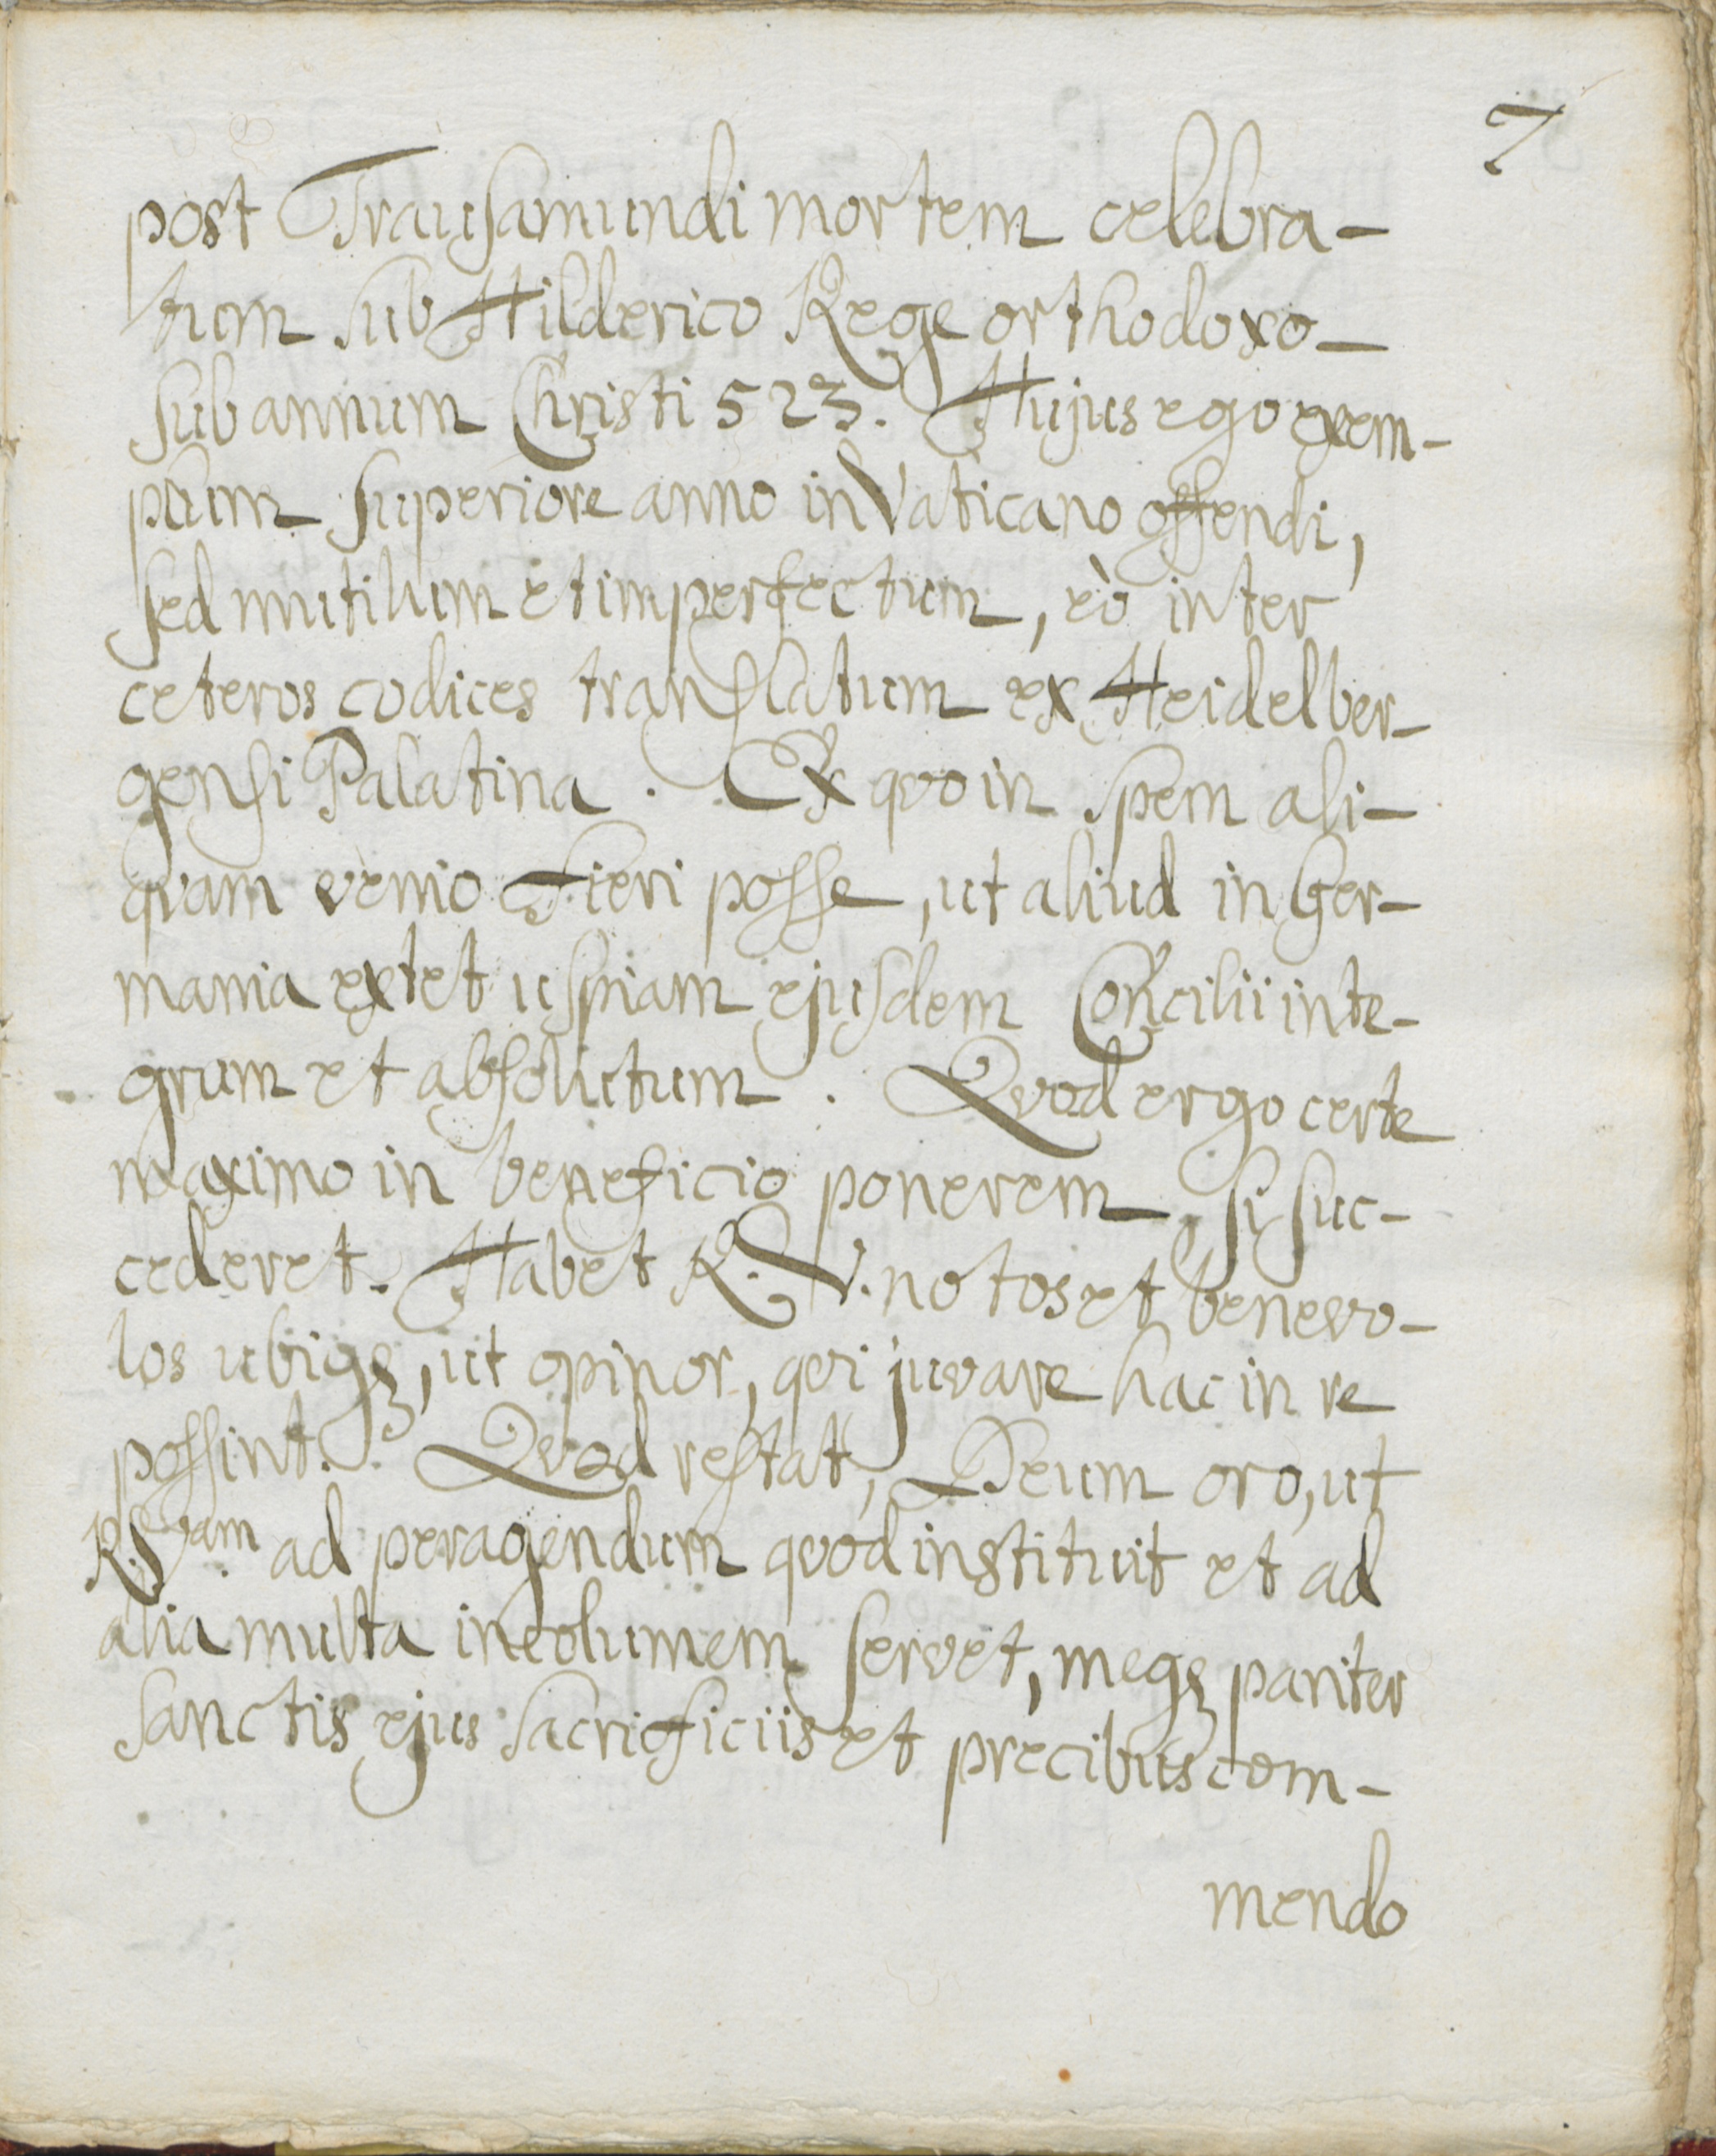 7
post Trausamundi mortem celebra-
tum sub Hilderico Rege orthodoxo
sub annum Christi 523. Hujus ego exem-
plum superiore anno in Vaticano offendi,
sed mutilum et imperfectum, eò inter
ceteros codices translatum ex Heidelber-
gensi Palatina. Ex qvo in spem ali-
qvam venio fieri posse, ut aliud in Ger-
mania extet uspiam ejusdem Concilii inte-
grum et absolutum. Qvod ergo certe
maximo in beneficio ponerem, si suc-
cederet. Habet R. V. notos et benevo-
los ubiqꝫ, ut opinor, qvi juvare hac in re
possint. Qvod restat, Deum oro, ut
R. Vam ad peragendum qvod instituit et ad
alia multa incolumem servet, meqꝫ pariter
sanctis ejus sacrificiis et precibus com-
mendo